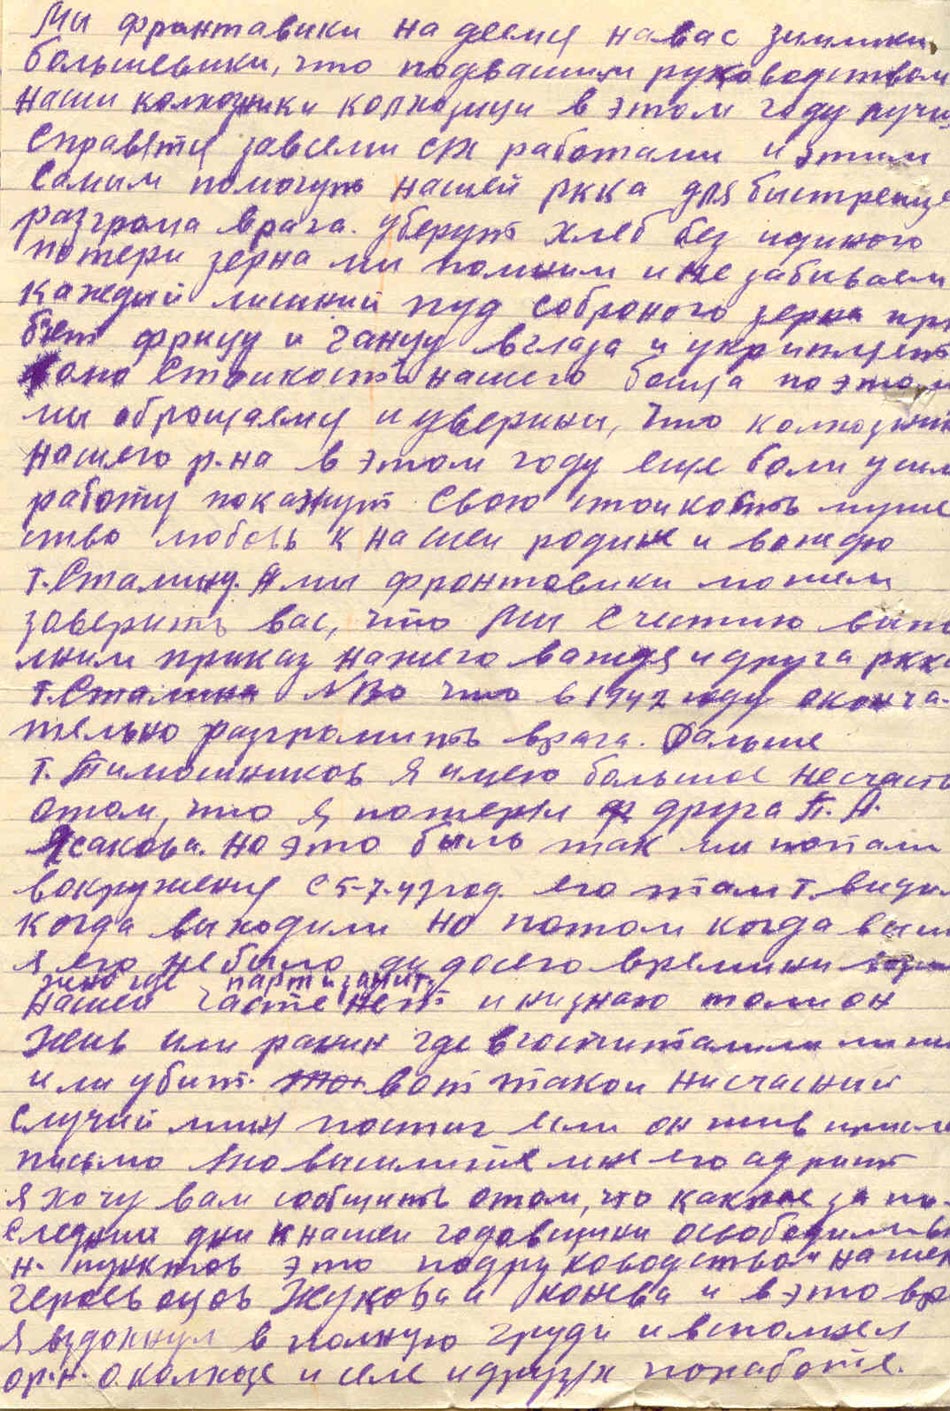 Мы фронтавики надеемся на вас
большевики, что подвашим руководством
наши колхозники колхозници в этом году лучш
справятся завсеми с/х работами и этим
самым помогут нашей ркка для быстреище
разгрома врага. уберут хлеб без идиного
потери зерна ми помним и не забываем
каждый лишний пуд собраного зерна пр
бет фрицу и гансу вглаза и укрипляет
оно стоикость нашего боица поэтом
мы обращаемся иуверини, что колхозник
нашего р-на в этом году еще боли усил
работу покажут свою стоикость муже
ство любовь к нашеи родине и вождю
т.Сталину. А мы фронтовики можем
заверить вас, что мы счестью выпо
лним приказ нашего важдя идруга ркк
т.Сталина №130 что в 1942 году оконча
тельно разгромить врага. Дальше
т. Тимошников я имею большое несчаст
отом, что я потерял друга П. А.
Исакова. но это быль так ми попали
вокружения с 5-7-42год. его там т. види
когда выходили но потом когда выш
я его небыло додосего времини
парт изанит
нашей часте нет и низнаю толи он
жив или ранин где вгоспитали
или убит. вот такои нисчасний
случий мин постиг если он жив
письмо то вышлите мне его адрист
я хочу вам сообщить отом, что как за по
следнии дни к нашей годовщини освободили
н. пунктов это подруководством нашех
героев оцов Жукова и конева и в это вр
я вздохнул в полную груди и вспомнел
ор-н. о.колхозе и селе идрузях поработе.